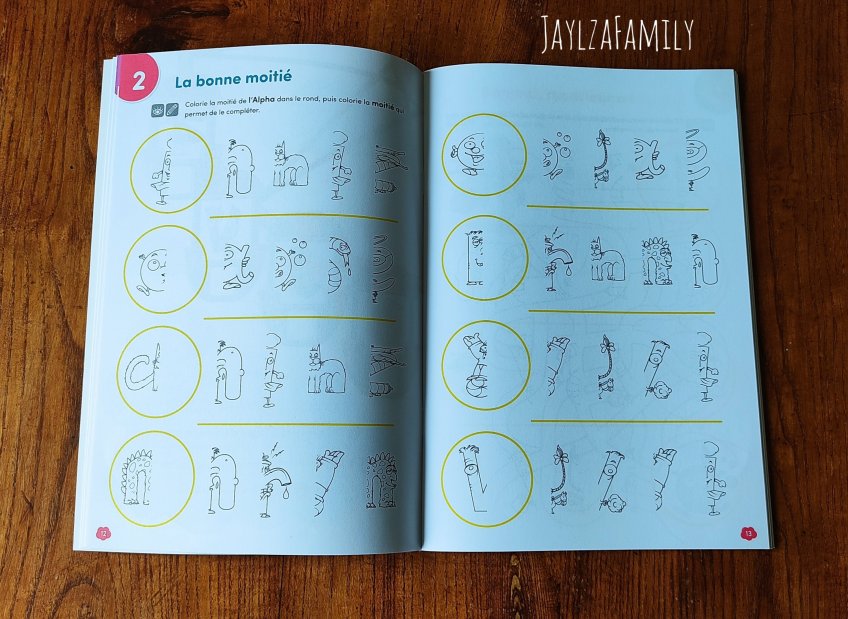 JaylzaFamily
2
La bonne moitié
Colorie la moitié de l'Alpha dans le rond, puis colorie la moitié qui
permet de le compléter.
12
13